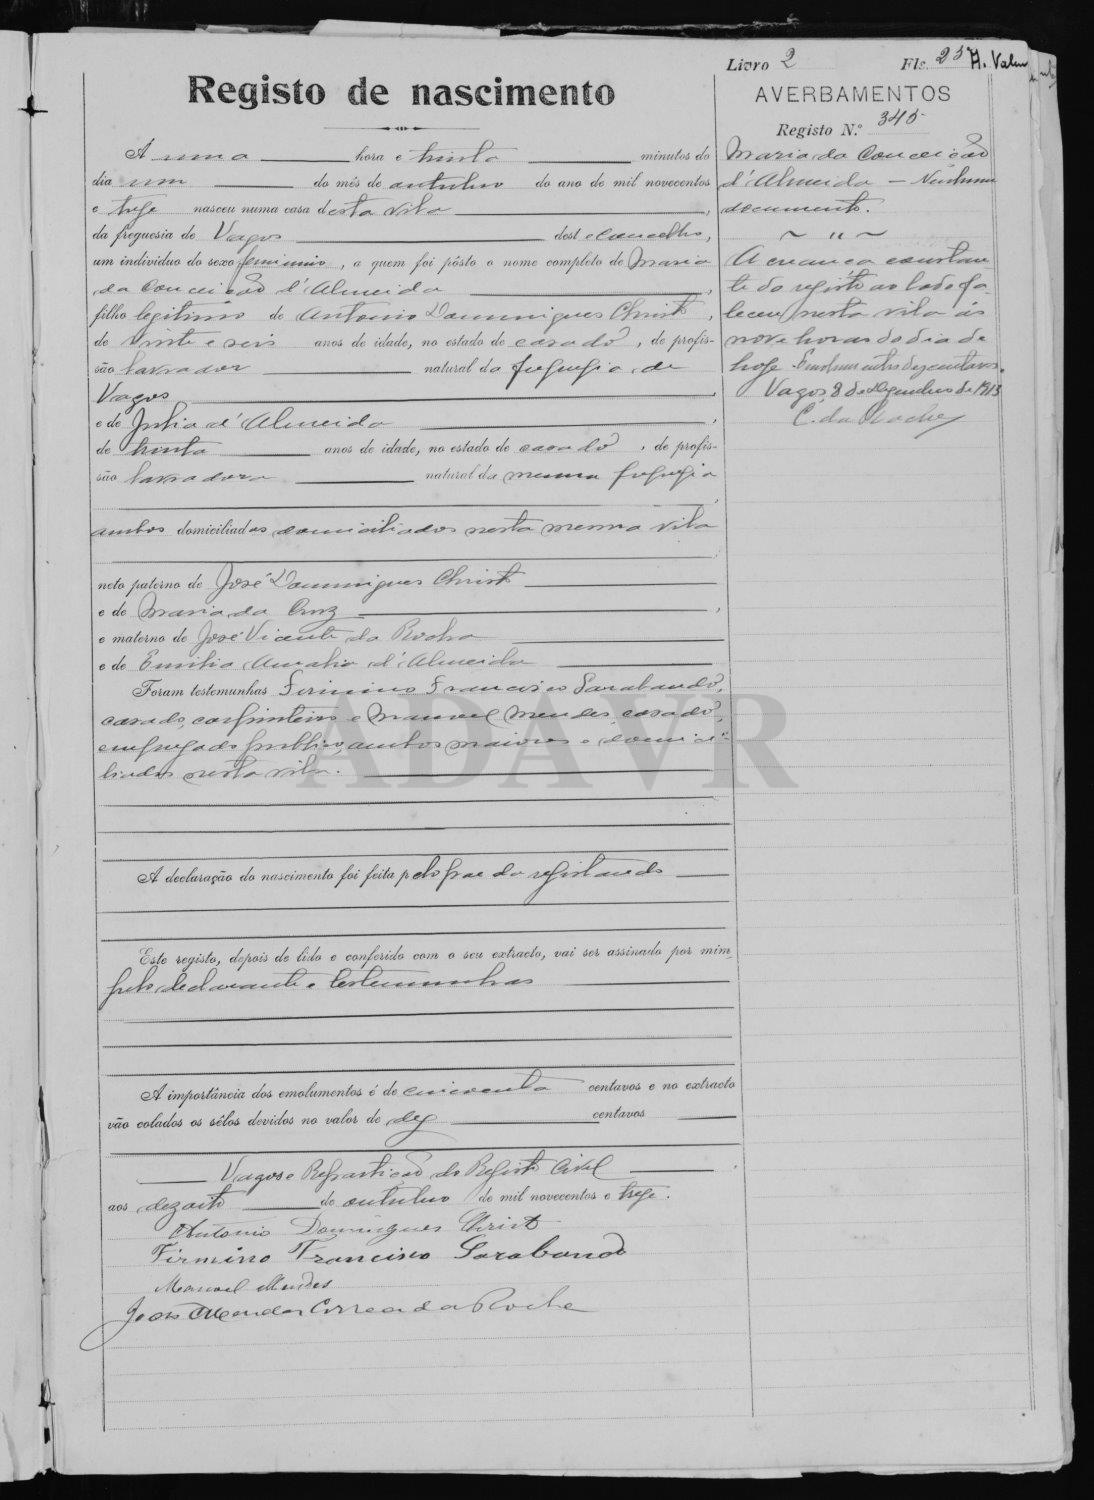 Livro 2 Fls. 25 H. Valen
Registo de nascimento
AVERBAMENTOS
Registo N.º 345
A uma hora e trinta minutos do
dia um do mês de outubro do ano de mil novecentos
e treze nasceu numa casa desta vila,
da freguesia de Vagos deste concelho,
um individuo do sexo feminino, a quem foi pôsto o nome completo de Maria
da Conceição d'Almeida,
filho legitimo de Antonio Domingues Christ,
de vinte e seis anos de idade, no estado de casado, de profis-
são lavrador natural da freguesia de
Vagos,
e de Julia d'Almeida,
de trinta anos de idade, no estado de casado, de profis-
são lavradora natural da mesma freguesia
,
ambos domiciliados domiciliados nesta mesma vila
neto paterno de José Domingues Christ
e de Maria da Cruz,
e materno de José Vicente da Rocha
e de Emilia Amalia d'Almeida
Foram testemunhas Firmino Francisco Sarabando,
casado, carpinteiro e Manuel Mendes, casado,
empregado publico, ambos maiores e domici-
liados nesta vila.
A declaração do nascimento foi feita pelo pae do registando
Este registo, depois de lido e conferido com o seu extracto, vai ser assinado por mim,
pelo declarante e testemunhas
A importância dos emolumentos é de cincoenta centavos e no extracto
vão colados os sêlos devidos no valor de dez centavos
Vagos e Repartição do Registo Civil
aos dezoito de outubro de mil novecentos e treze.
Antonio Domingues Christ
Firmino Francisco Sarabando
Manoel Mendes
João Mendes Correa da Rocha
Maria da Conceição
d'Almeida — Nenhum
documento.
~ " ~
A creança constan-
te do registo ao lado fa-
leceu nesta vila ás
nove horas do dia de
hoje. Emolumentos dez centavos.
Vagos, 8 de Dezembro de 1913
C. da Rocha
ADAVR